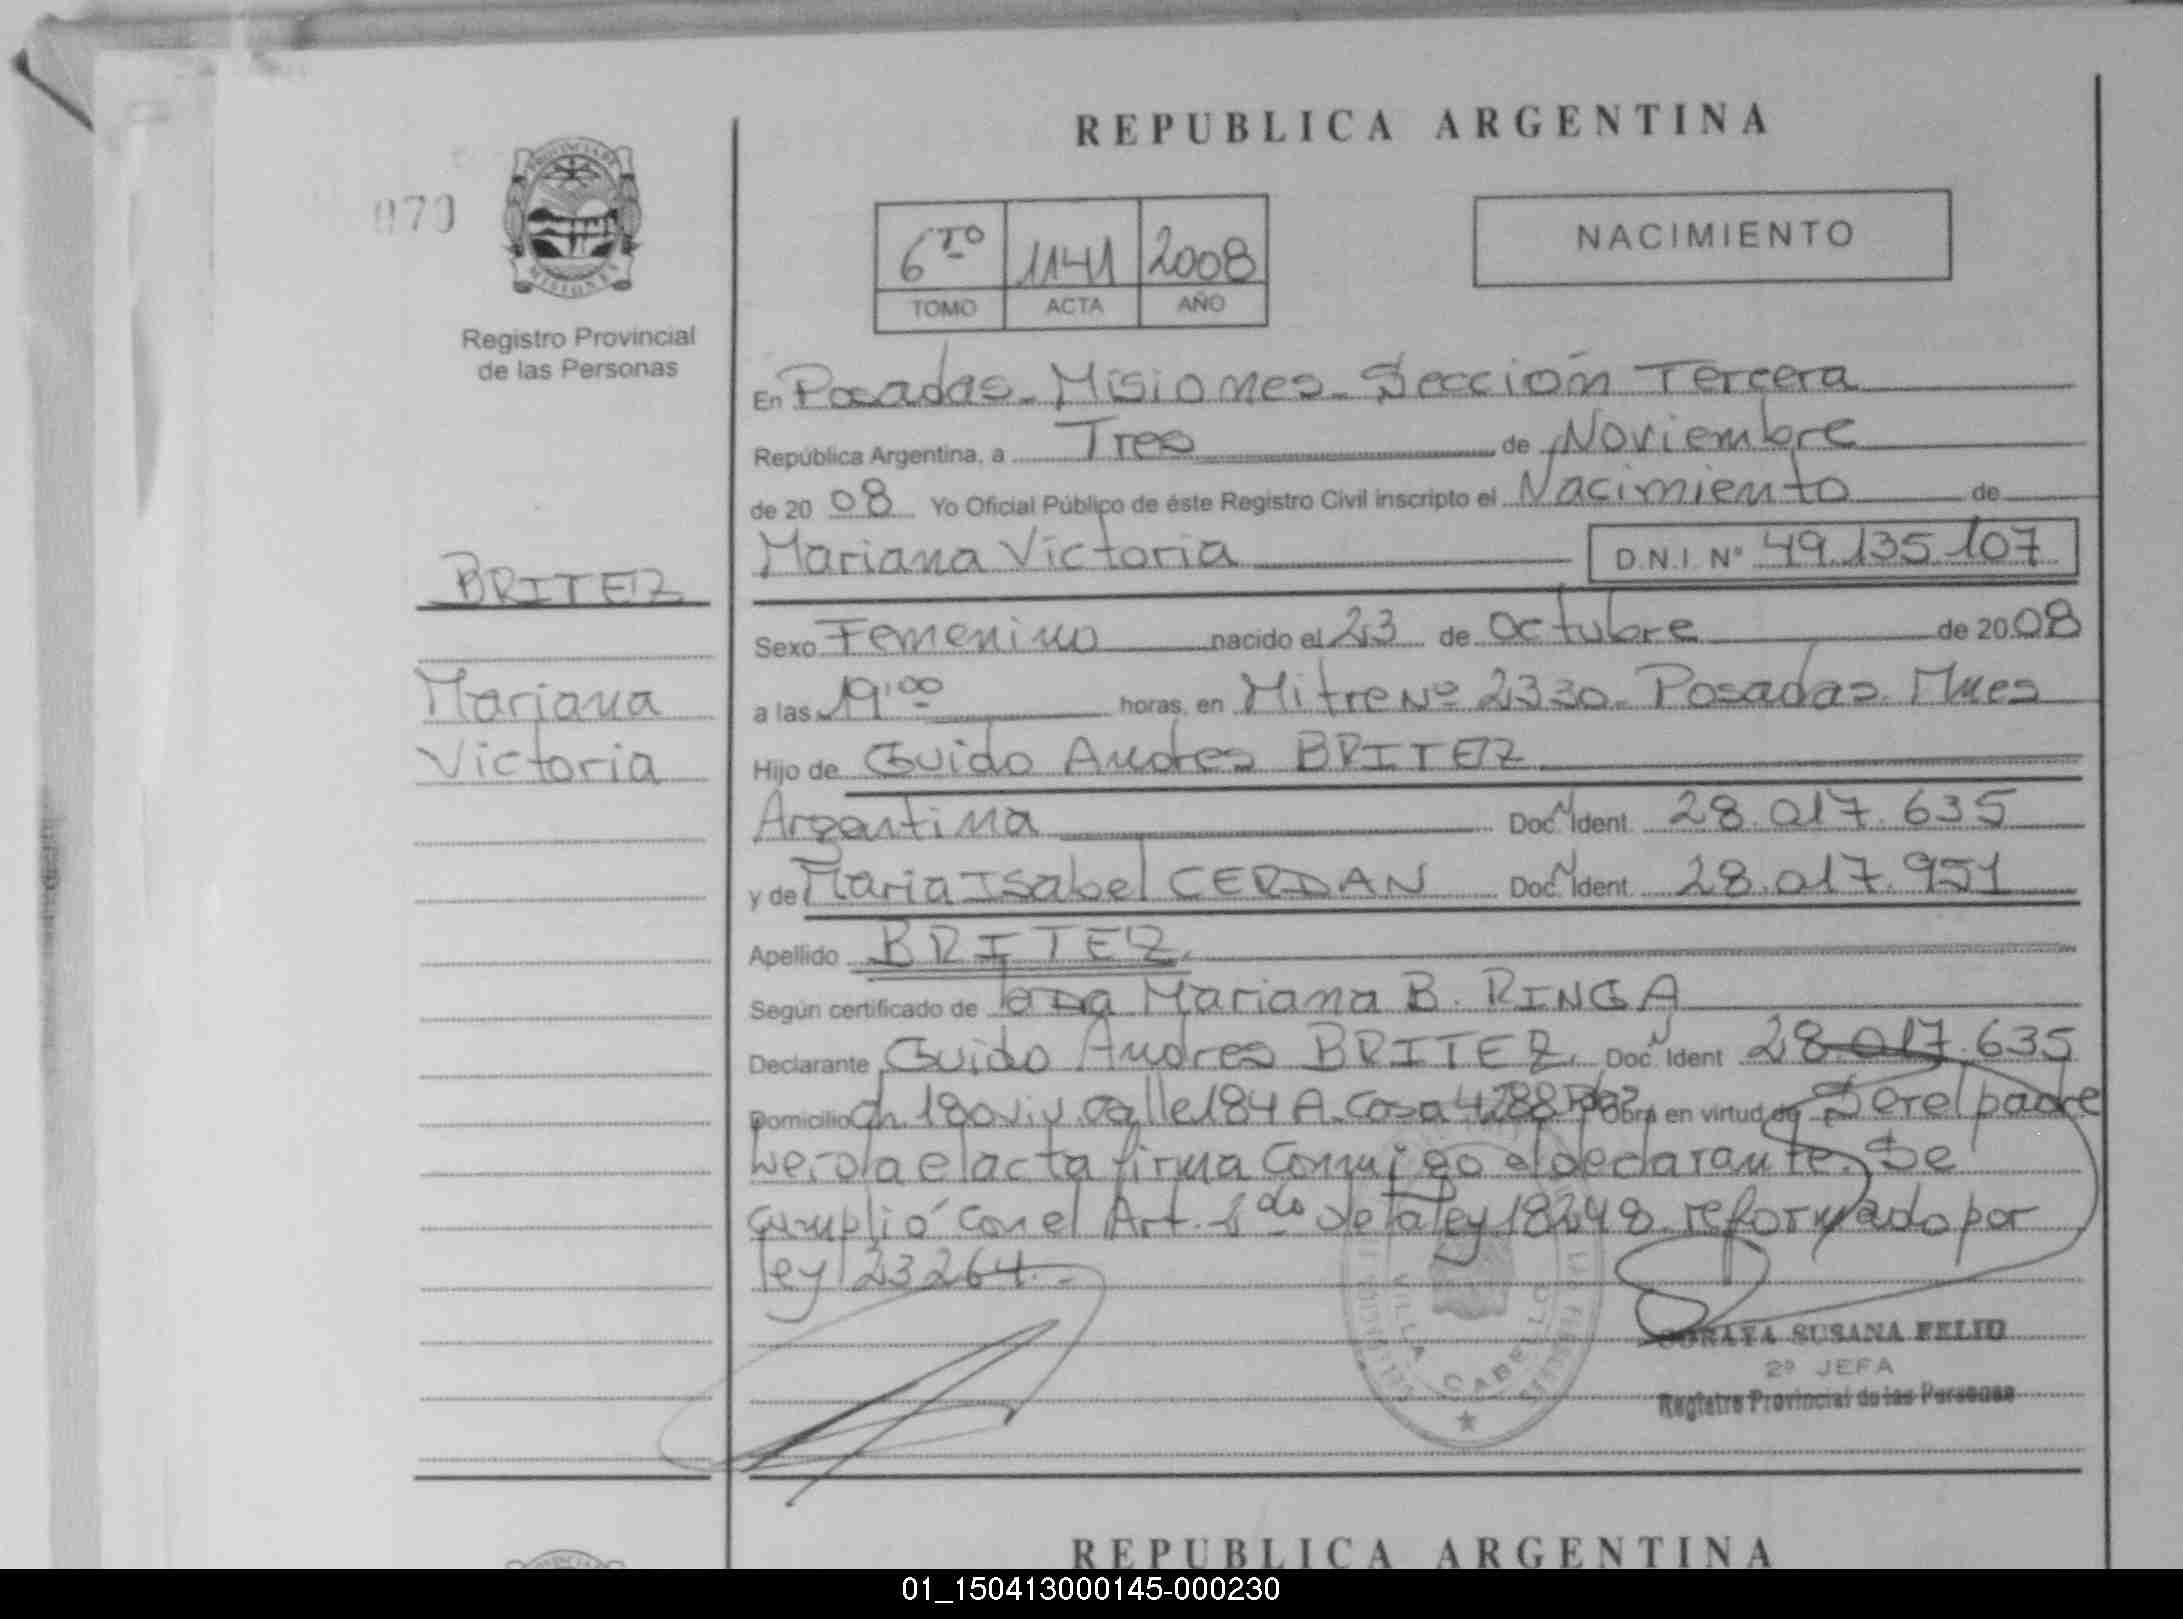 REPUBLICA ARGENTINA
070
PROVINCIA DE
MISIONES
Registro Provincial
de las Personas
6TO 1141 2008
TOMO ACTA AÑO
NACIMIENTO
En Posadas - Misiones - Sección Tercera
República Argentina, a Tres de Noviembre
de 2008 Yo Oficial Público de éste Registro Civil inscripto el Nacimiento de
Mariana Victoria D.N.I. Nº 49.135.107
BRITEZ
Mariana
Victoria
Sexo Femenino nacido el 23 de Octubre de 2008
a las 19:00 horas, en Mitre Nº 2330 - Posadas. Mnes
Hijo de Guido Andres BRITEZ
Argentina Doc. Ident. 28.017.635
y de Maria Isabel CERDAN Doc. Ident. 28.017.951
Apellido BRITEZ.
Según certificado de Mariana B. RINGA
Declarante Guido Andres BRITEZ. Doc. Ident 28.017.635
Domicilio Ch. 180 viv. calle 184 A. Casa 4288 Obra en virtud de Ser el padre
el acta firma conmigo el declarante. Se
cumplió con el Art. de la ley 18248 reformado por
ley 23264.-
VILLA CABELLO
SORAYA SUSANA FELIU
2º JEFA
Registro Provincial de las Personas
REPUBLICA ARGENTINA
01_150413000145-000230